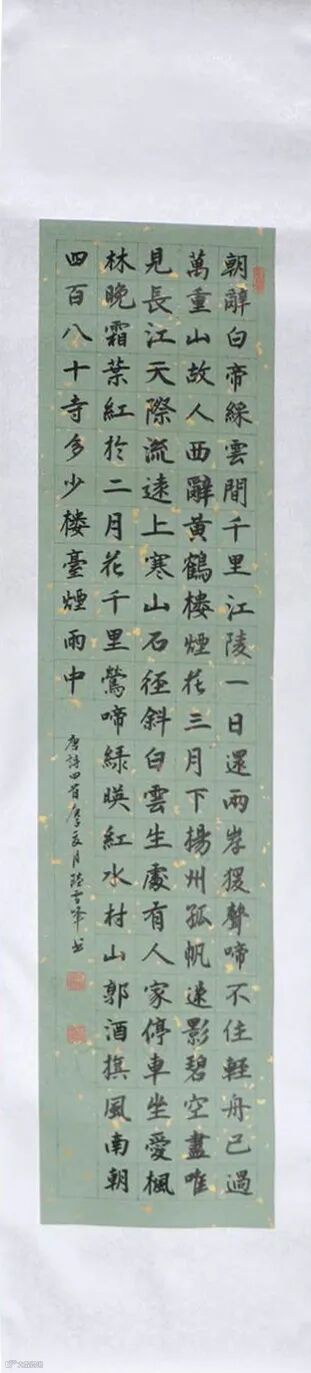 朝辭白帝綵雲間千里江陵一日還兩岸猨聲啼不住輕舟已過
萬重山故人西辭黃鶴樓煙花三月下揚州孤帆遠影碧空盡唯
見長江天際流遠上寒山石徑斜白雲生處有人家停車坐愛楓
林晚霜葉紅於二月花千里鶯啼綠暎紅水村山郭酒旗風南朝
四百八十寺多少楼臺煙雨中
唐詩四首